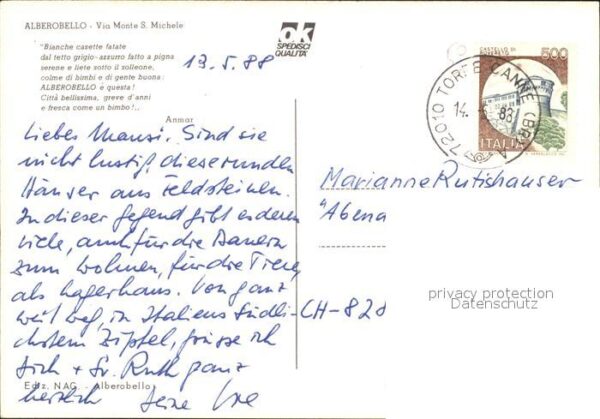 ALBEROBELLO - Via Monte S. Michele
"Bianche casette fatate
dal tetto grigio-azzurro fatto a pigna
serene e liete sotto il solleone,
colme di bimbi e di gente buona:
ALBEROBELLO è questa!
Città bellissima, greve d'anni
e fresca come un bimbo!..
Anmar
ok
SPEDISCI
QUALITÀ
13.5.88
Liebes Mausi. Sind sie
nicht lustig, diese runden
Häuser aus Feldsteinen.
In dieser Gegend gibt es deren
viele, auch für die Bauern
zum Wohnen, für die Tiere,
als Lagerhaus. Von ganz
weit weg, in Italiens südli-
chstem Zipfel, grüsse ich
Dich + Sr. Ruth ganz
herzlich Deine
Ediz. NAG. - Alberobello
500
ITALIA
72010 TORRE CANNE (BR)
14.
Marianne Rutishauser
CH-828
privacy protection
Datenschutz